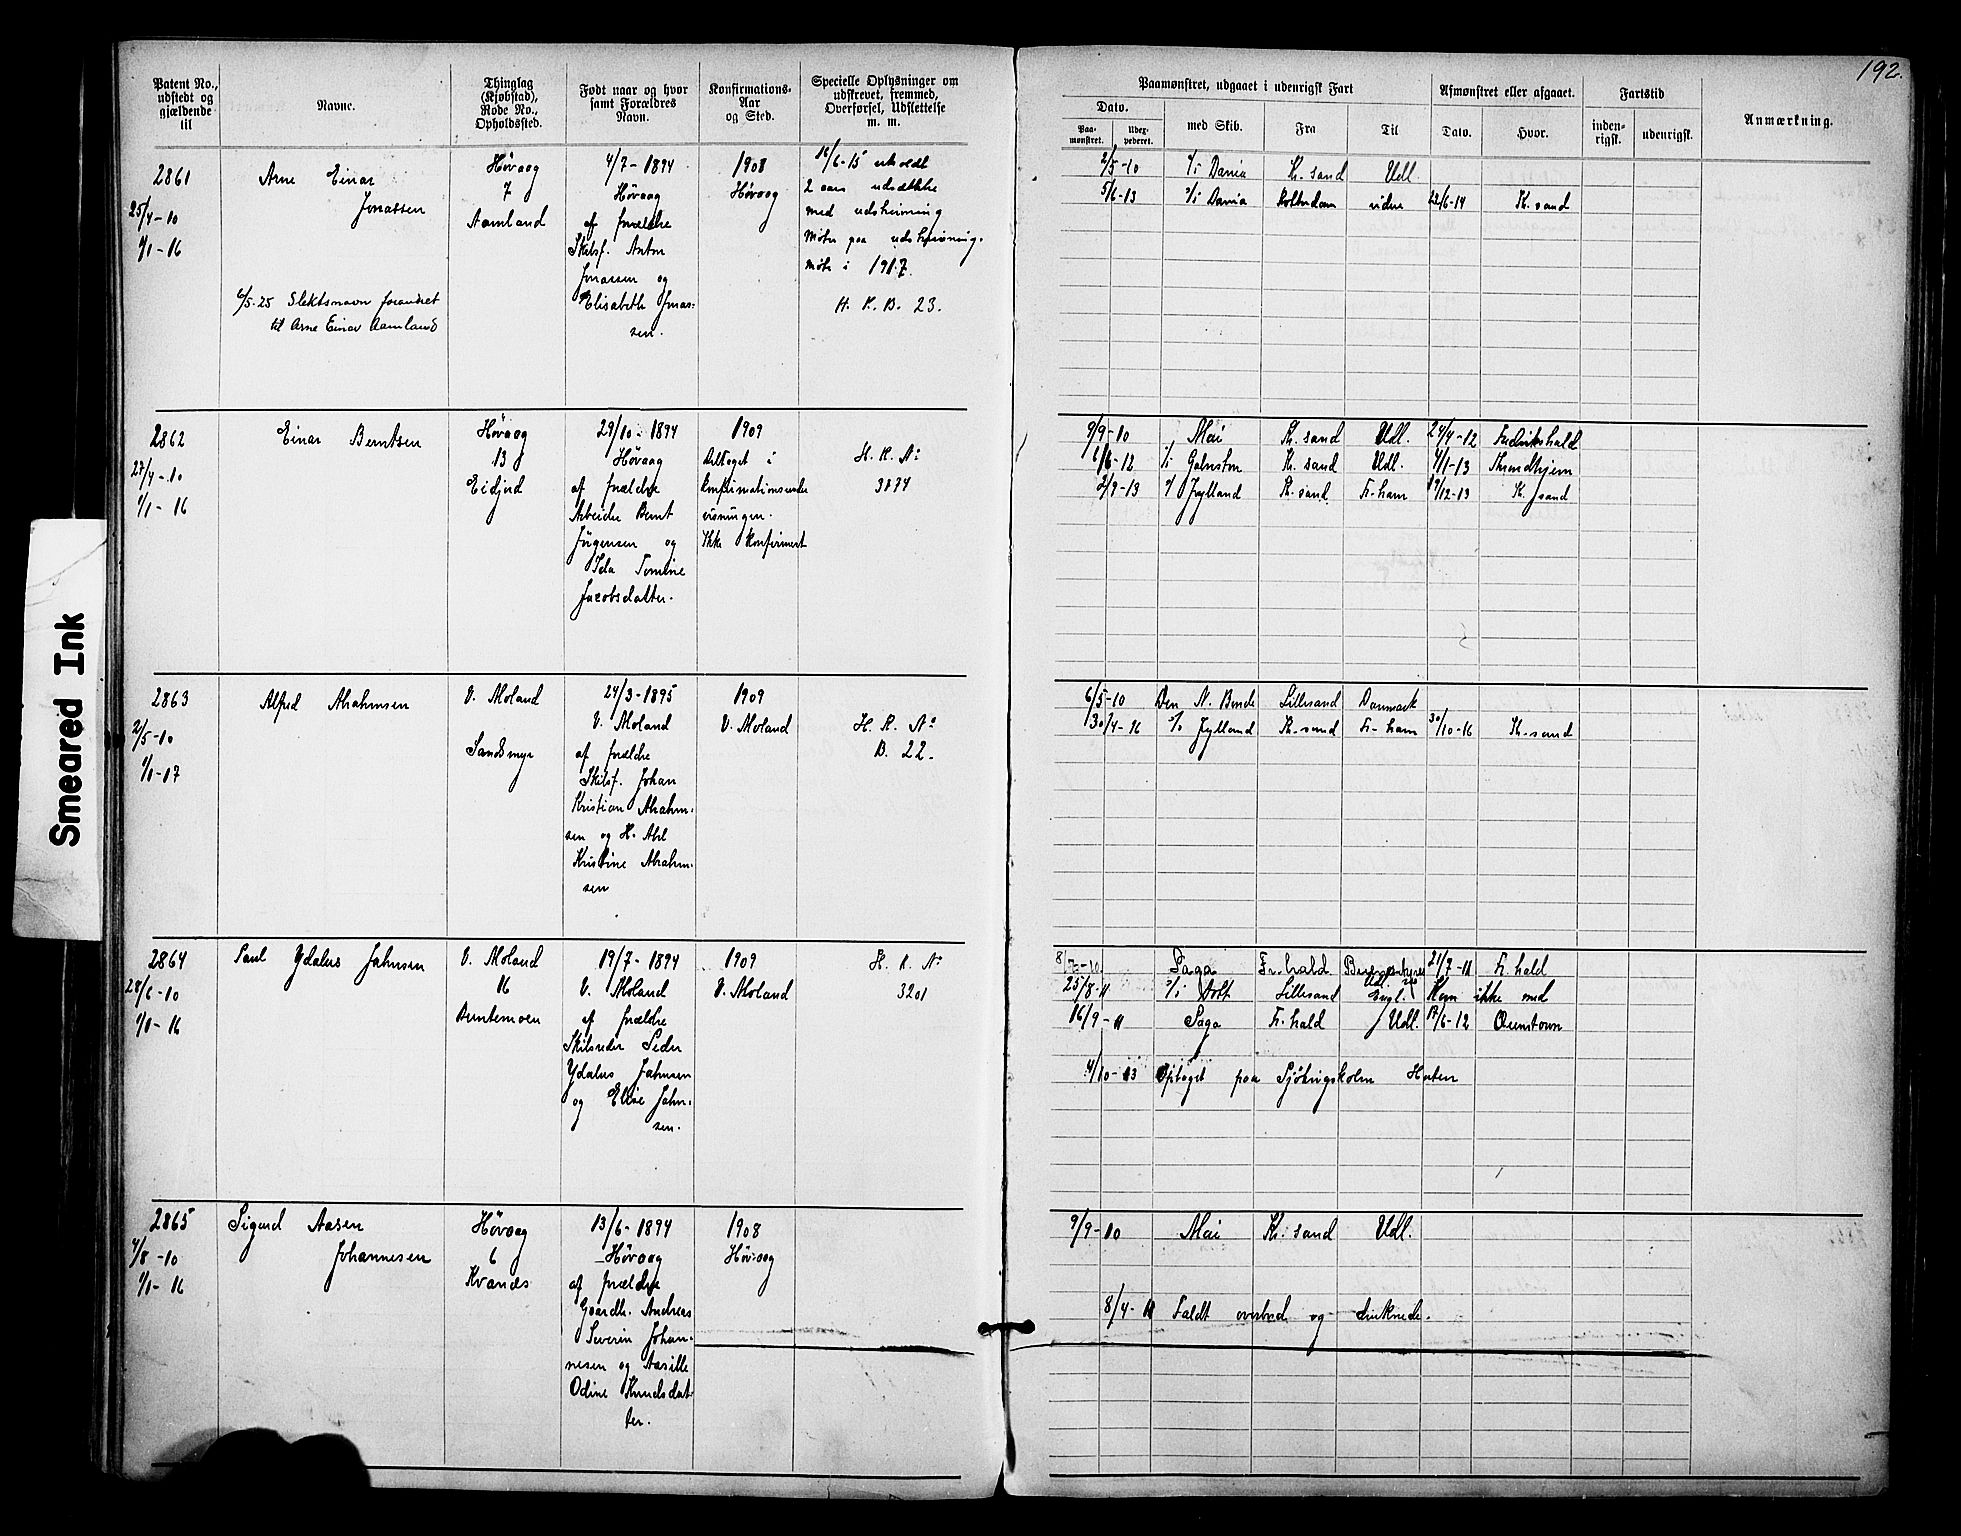 192.
Patent No., udstedt og gjældende til
Navne.
Thinglag (Kjøbstad), Rode No., Opholdssted.
Født naar og hvor samt Forældres Navn.
Konfirmations-Aar og Sted.
Specielle Oplysninger om udskrevet, fremmed, Overførsel, Udslettelse m. m.
Paamønstret, udgaaet i udenrigsk Fart
Dato.
Paa-mønstret.
Udex-pederet.
med Skib.
Fra
Til
Afmønstret eller afgaaet.
Dato.
Hvor.
Fartstid
inden-rigsk.
udenrigsk.
Anmærkning.
2861
25/4-10
1/1-16
Arne Einar
Jonassen
6/5-25 Slektsnavn forandret
til Arne Einar Aamland
Høvaag
7
Aamland
4/7-1894
Høvaag
af forældre
Skibsf. Anton
Jonassen og
Elisabeth Jonas-
sen.
1908
Høvaag
16/6-15
2 aars udsættelse
med udskrivning
Møter paa udskrivning.
møte i 1917.
H. R. B. 23.
2/5-10 Dania Kr. sand Udl.
5/6-13 Dania Rotterdam videre 22/6-14 Kr. sand
2862
27/4-10
1/1-16
Einar Berntsen
Høvaag
13
Eidjord
29/10-1894
Høvaag
af forældre
Arbeider Bernt
Jörgensen og
Ida Tomine
Jacobsdatter.
1909
Deltaget i
konfirmationsunder
visningen.
Ikke konfirmert
H. R. A:
3874
9/9-10 Mai Kr. sand Udl. 24/4-12 Fredrikshald
6/6-12 Kr. sand Udl. 4/1-13 Throndhjem
2/9-13 Jylland Kr. sand Fr-havn 19/12-13 Kr. sand
2863
2/5-10
1/1-17
Alfred Abrahmsen
V. Moland
Sandsmyr
24/3-1895
V. Moland
af forældre
Skibsf. Johan
Kristian Abrahm-
sen og H. Abel
Kristine Abrahm-
sen
1909
V. Moland
H. R. A:
B. 22.
6/5-10 Den N. Bonde Lillesand Danmark
30/4-16 Jylland Kr. sand Fr-havn 30/10-16 Kr. sand
2864
28/6-10
1/1-16
Paul Ydalus Jahnsen
V. Moland
16
Bentemoen
19/7-1894
V. Moland
af forældre
Skibsreder Peder
Ydalus Jahnsen
og Elise Jahn-
sen.
1909
V. Moland
H. R. A:
3201
Saga Fr. hald 21/7-11 Fr. hald
25/8-11 Lillesand Engl. Kom ikke med
16/9-11 Saga Fr. hald Udl. 17/6-12 Queenstown
4/10-13 Optaget paa Sjökrigsskolen Horten
2865
4/8-10
1/1-16
Sigurd Aasen
Johannesen
Høvaag
6
Kvanes
13/6-1894
Høvaag
af forældre
Gaardb. Andreas
Severin Johan-
nesen og Aasille
Odine Knudsdat-
ter.
1908
Høvaag
9/9-10 Mai Kr. sand Udl.
8/4-11 Faldt overbord og druknede.
Smeared Ink